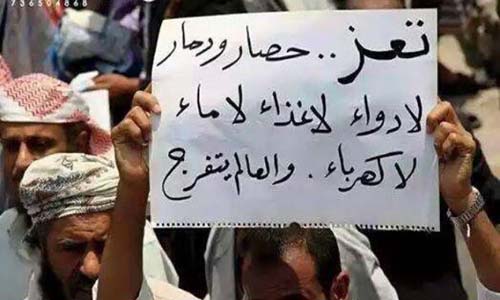 736504868
تعز.. حصار ودمار
لا دواء لا غذاء لا ماء
لا كهرباء. والعالم يتفرج